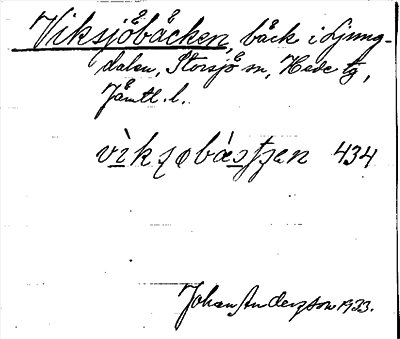 Viksjöbäcken, bäck i Ljung-
dalen, Storsjö sn, Hede tg,
Jämtl. l.
434
Johan Anderzson 1933.